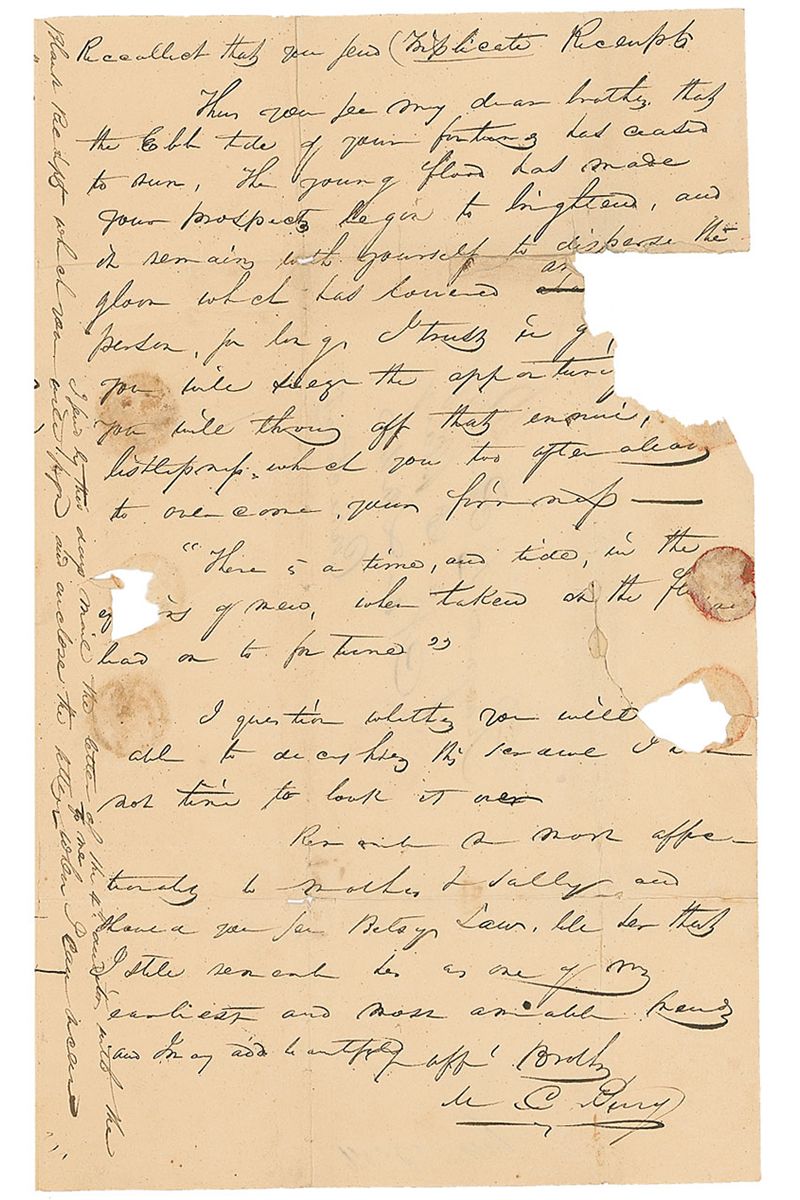 Reccollect that you send (Triplicate Receipts
Thus you see my dear brother, that
the Ebb tide of your fortune has ceased
to run, the young flood has made
your prospects begin to brighten, and
it remains with yourself to disperse the
gloom which has lowered
person, for long, I trust in g
you will seize the opportuni
you will throw off that ennui,
listlessness, which you too often allow
to overcome your firmness —
"There is a time, and tide, in the
of men, when taken at the
lead on to fortune"
I question whether you will
able to decypher this scrawl I
not time to look it over
Remember me most affec—
tionately to mother & Sally and
should you see Betsy Law, tell her that
I still remember her as one of my
earliest and most amiable friends
and I may add beautiful aff' Brother
M C Perry
I send by this days mail the letter of the 4. to me
Blank Receipts which you will sign and enclose the letter when I can